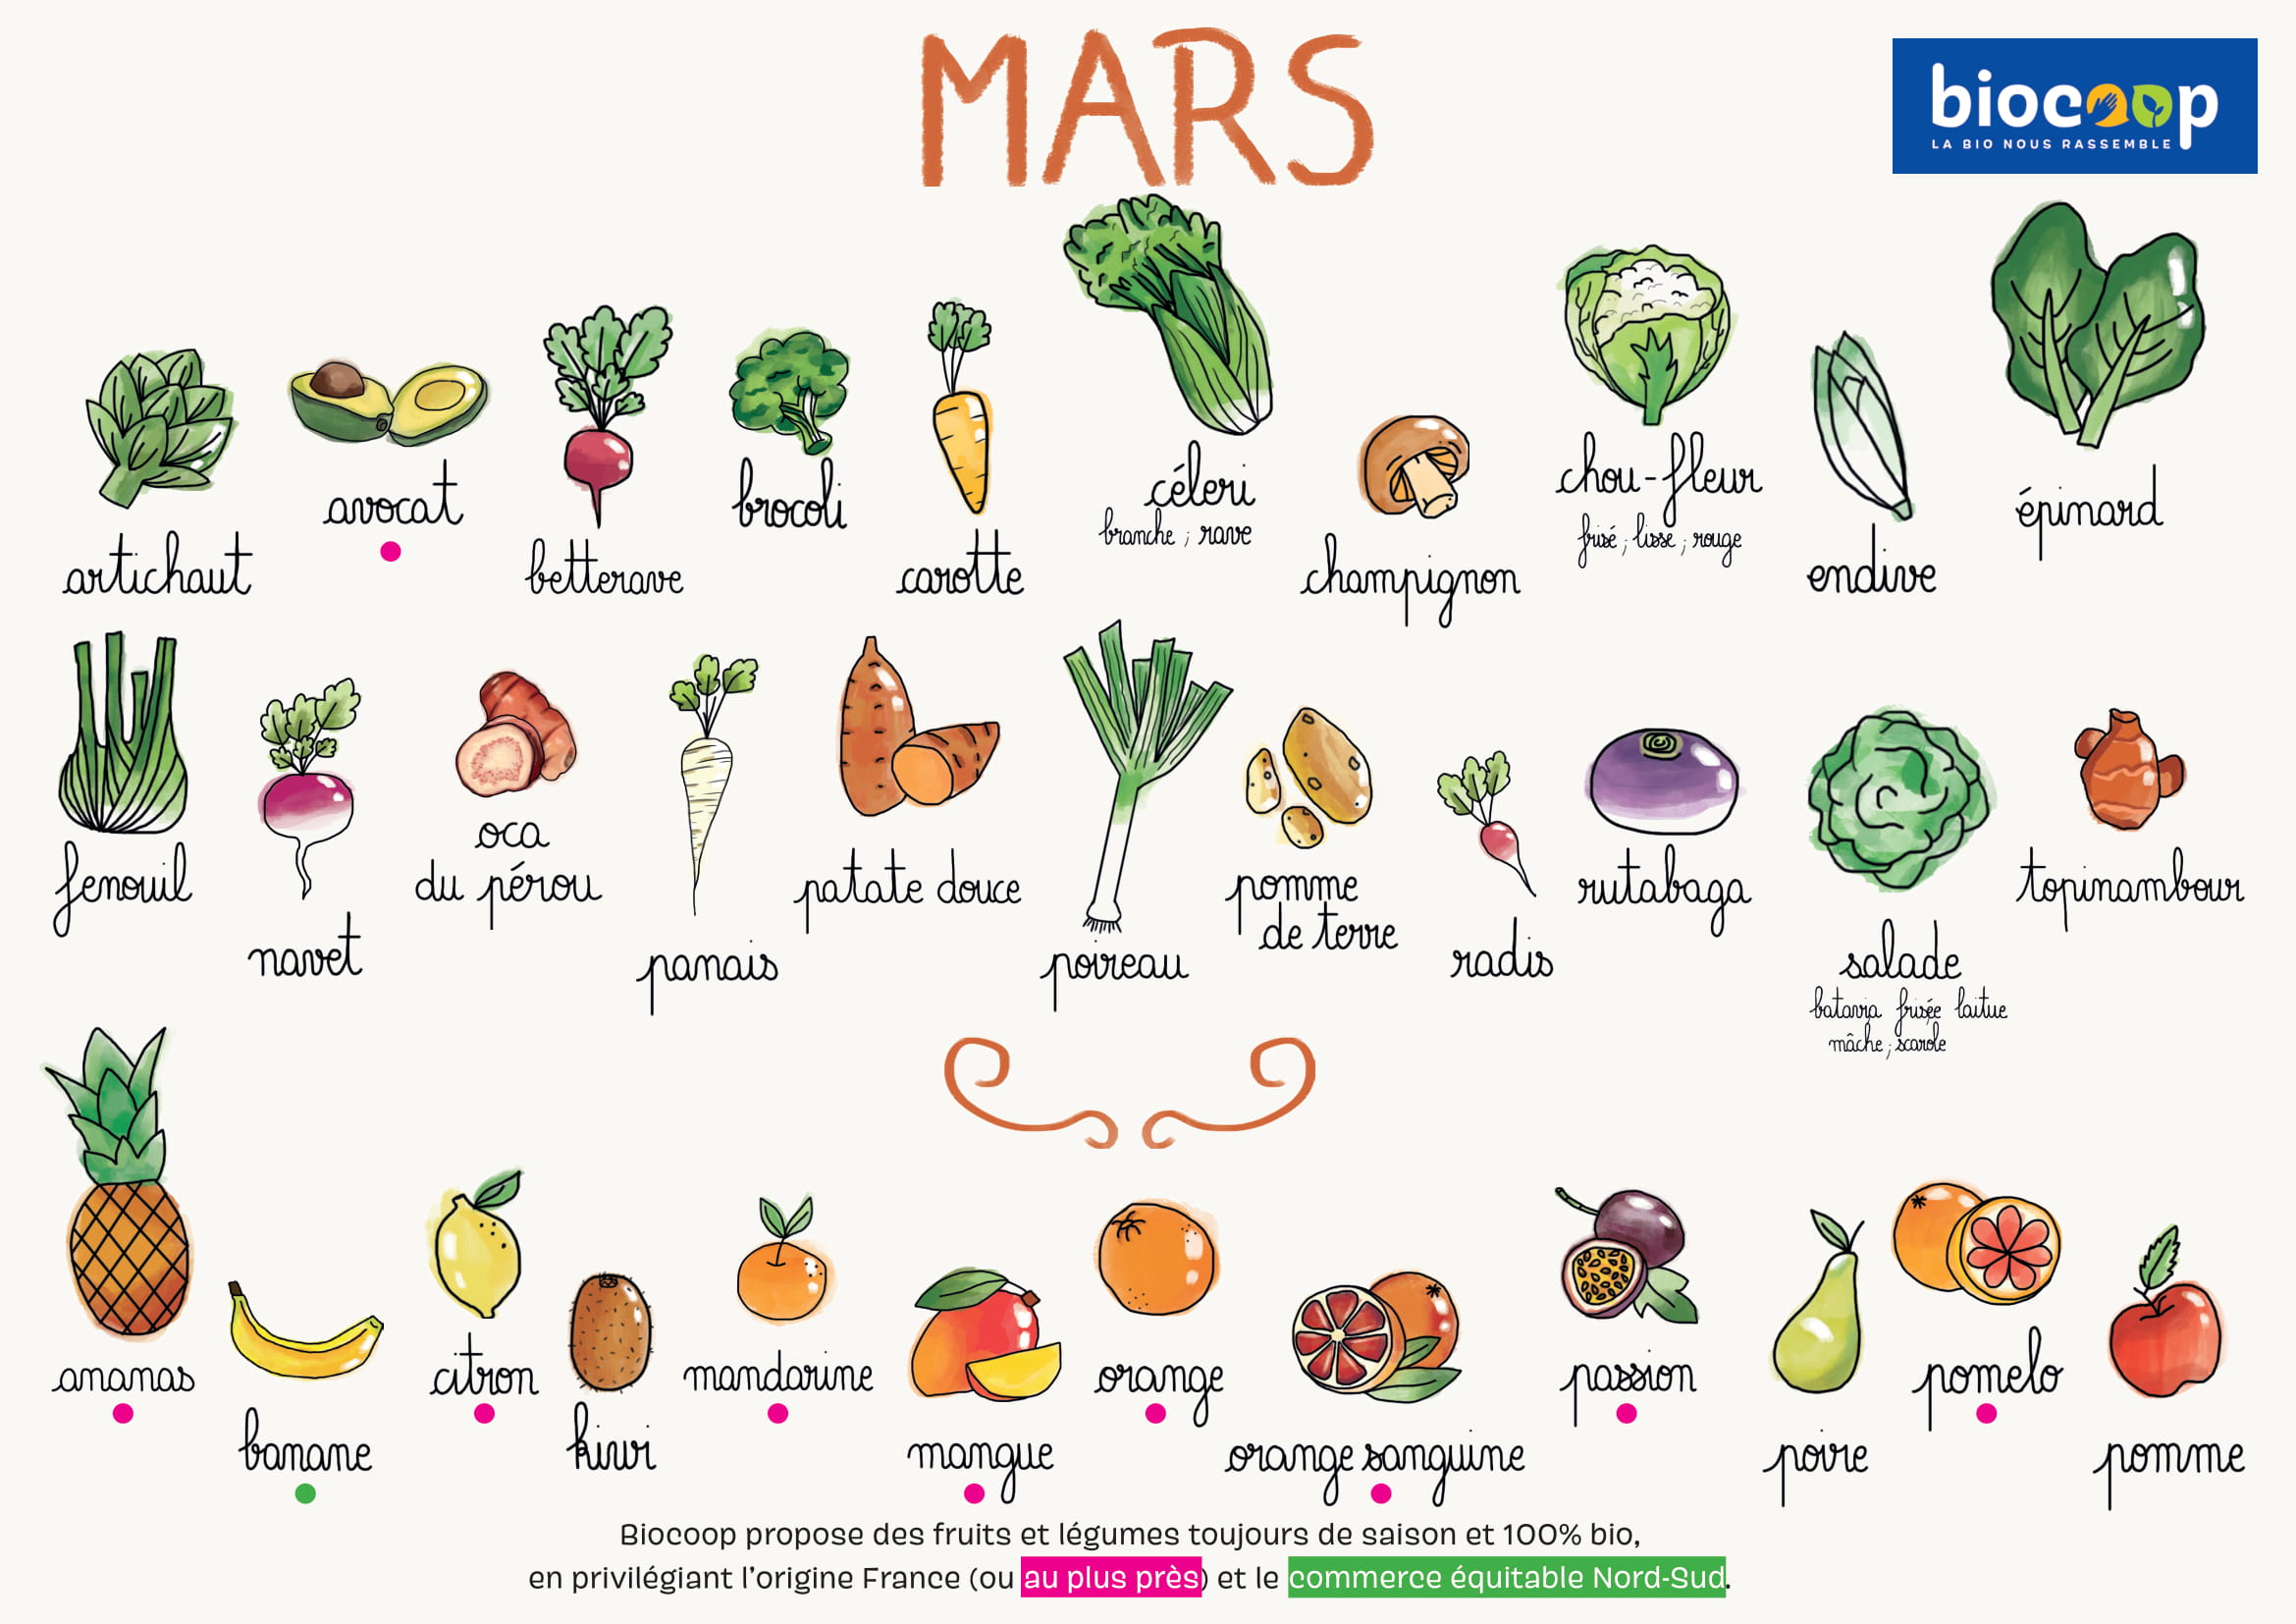 MARS
biocoop
LA BIO NOUS RASSEMBLE
artichaut
avocat
betterave
brocoli
carotte
céleri
branche ; rave
champignon
chou-fleur
frisé ; lisse ; rouge
endive
épinard
fenouil
navet
oca
du pérou
panais
patate douce
poireau
pomme
de terre
radis
rutabaga
salade
batavia frisée laitue
mâche ; scarole
topinambour
ananas
banane
citron
kiwi
mandarine
mangue
orange
orange sanguine
passion
poire
pomelo
pomme
Biocoop propose des fruits et légumes toujours de saison et 100% bio,
en privilégiant l'origine France (ou au plus près) et le commerce équitable Nord-Sud.